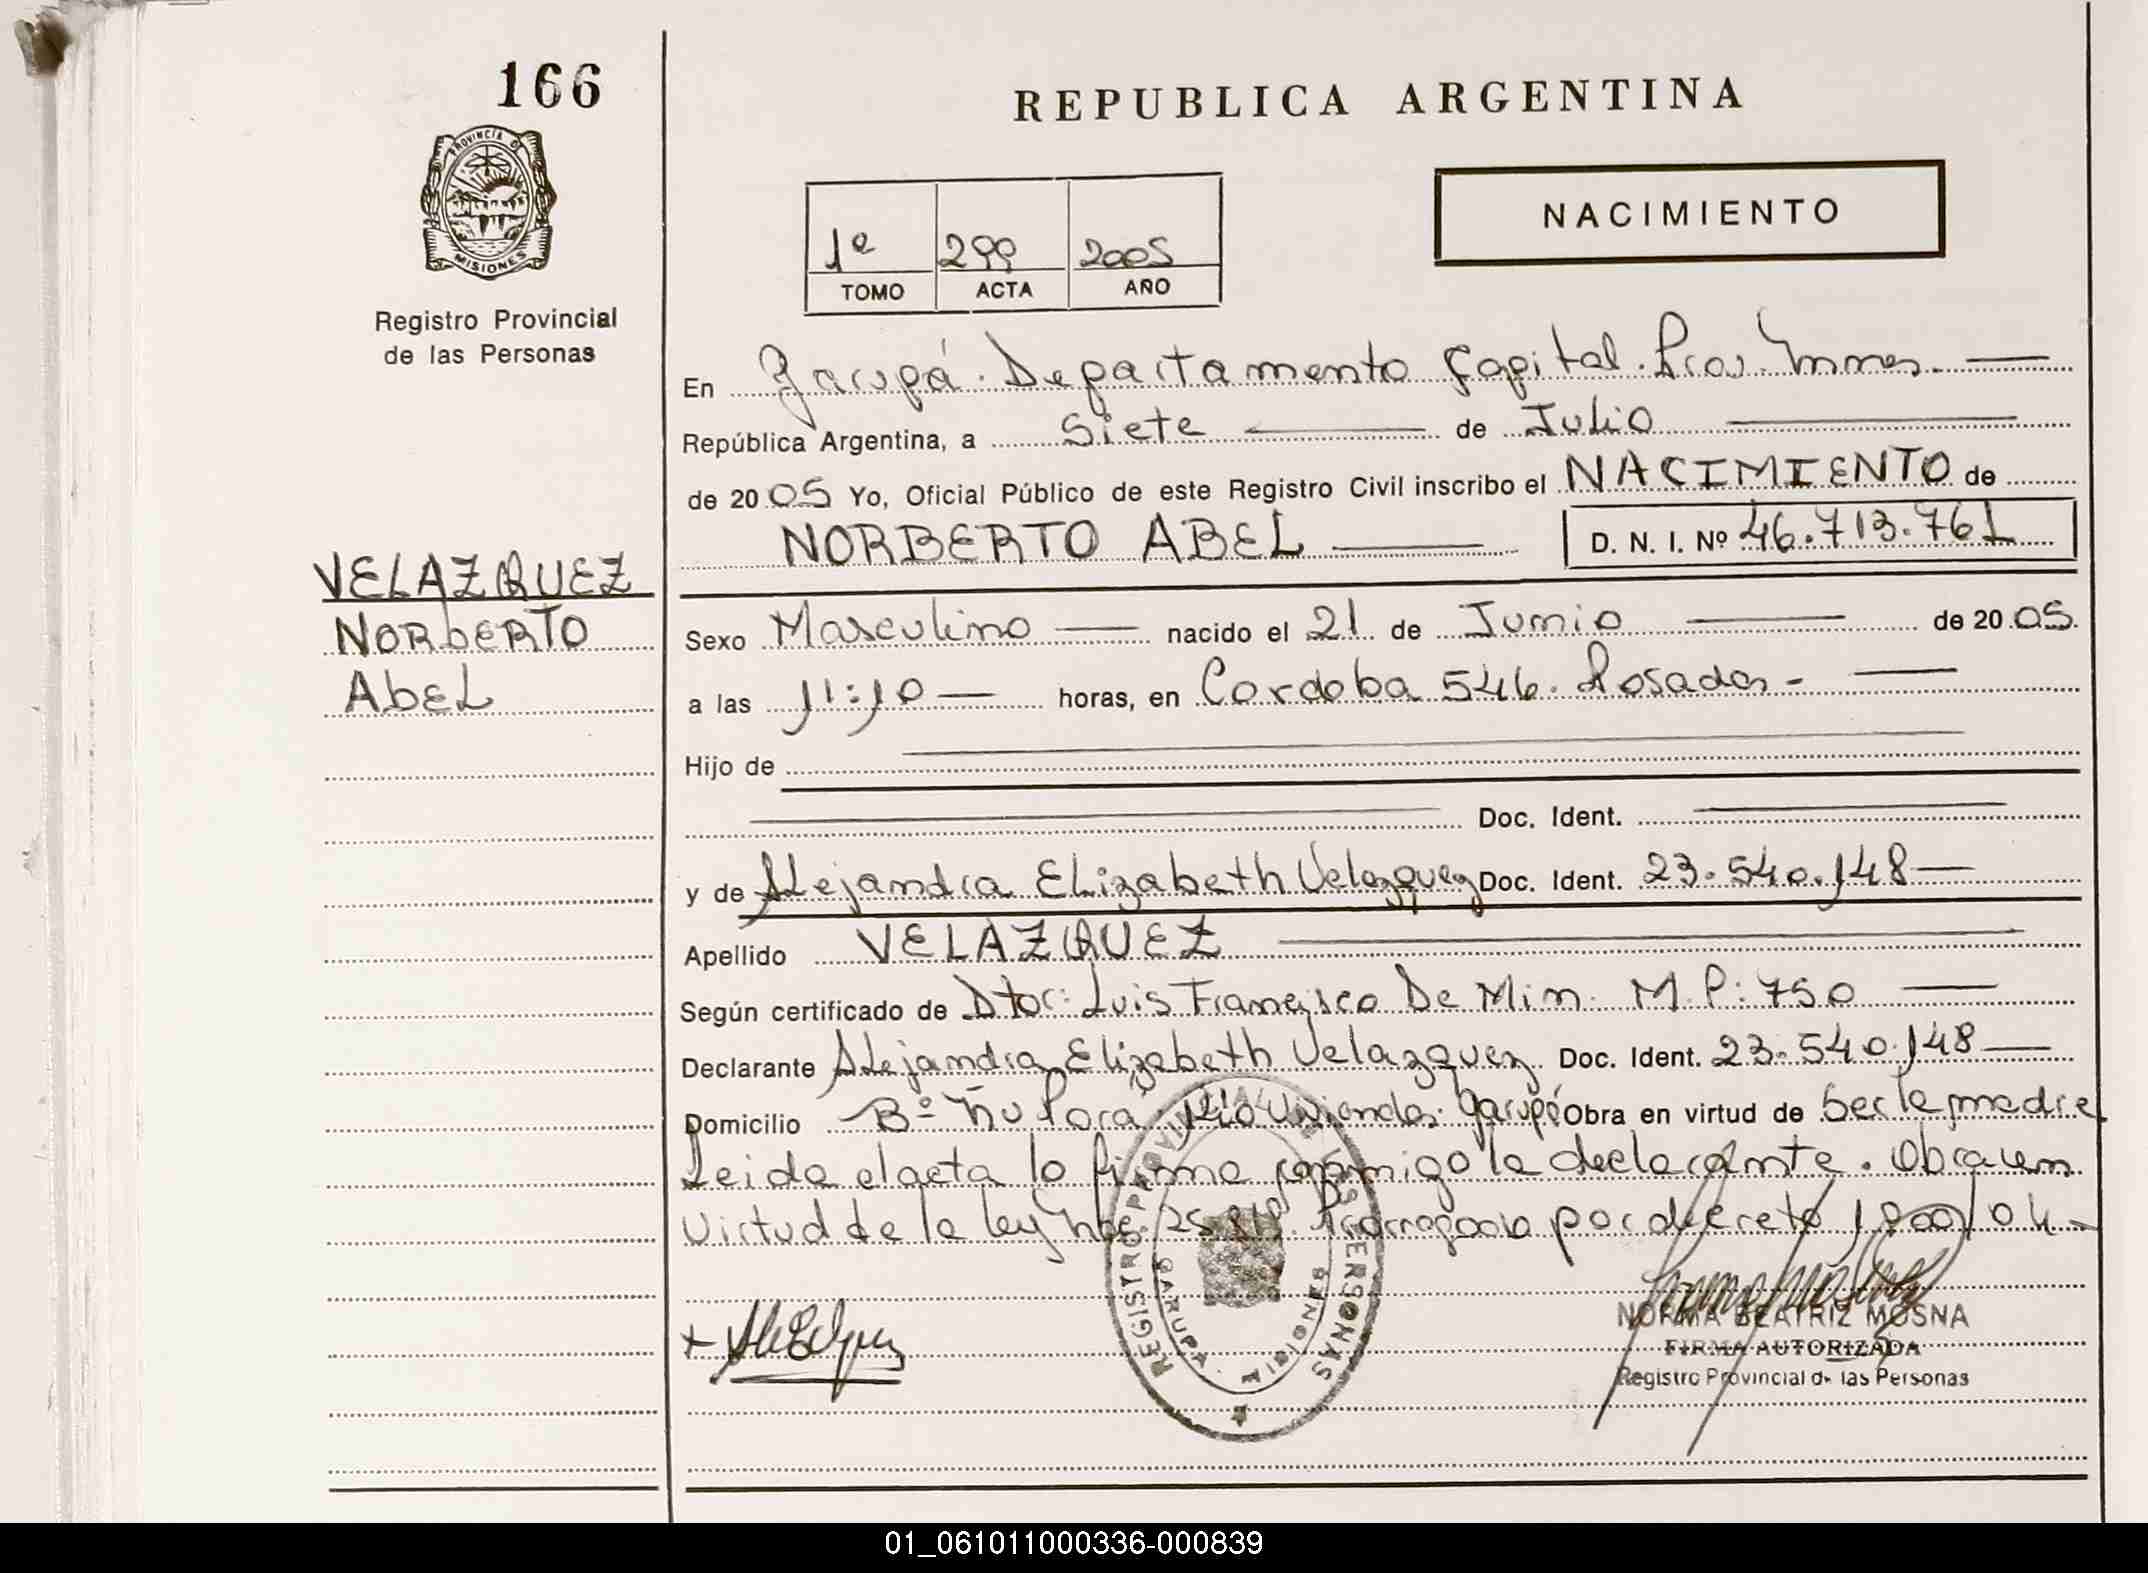 166
REPUBLICA ARGENTINA
PROVINCIA DE
MISIONES
NACIMIENTO
1º 299 2005
TOMO ACTA AÑO
Registro Provincial
de las Personas
En Garupá. Departamento Capital. Prov. Mnes.
República Argentina, a Siete de Julio
de 2005 Yo, Oficial Público de este Registro Civil inscribo el NACIMIENTO de
NORBERTO ABEL D. N. I. Nº 46.713.761
VELAZQUEZ
NORbERTO
AbEL
Sexo Masculino nacido el 21 de Junio de 2005.
a las 11:10 horas, en Cordoba 546. Posadas -
Hijo de
Doc. Ident.
y de Alejandra Elizabeth Velazquez Doc. Ident. 23.540.148
Apellido VELAZQUEZ
Según certificado de Dtor: Luis Francisco De Min. M.P: 750
Declarante Alejandra Elizabeth Velazquez Doc. Ident. 23.540.148
Domicilio Bº Ñu Pora Viviendas. Garupá Obra en virtud de Ser la madre
Leida el acta la firma conmigo la declarante. Obra en
virtud de la ley 25.819. Prorrogada por decreto /04
REGISTRO PROVINCIAL DE LAS PERSONAS
GARUPA
MISIONES
NORMA BEATRIZ MOSNA
FIRMA AUTORIZADA
Registro Provincial de las Personas
01_061011000336-000839